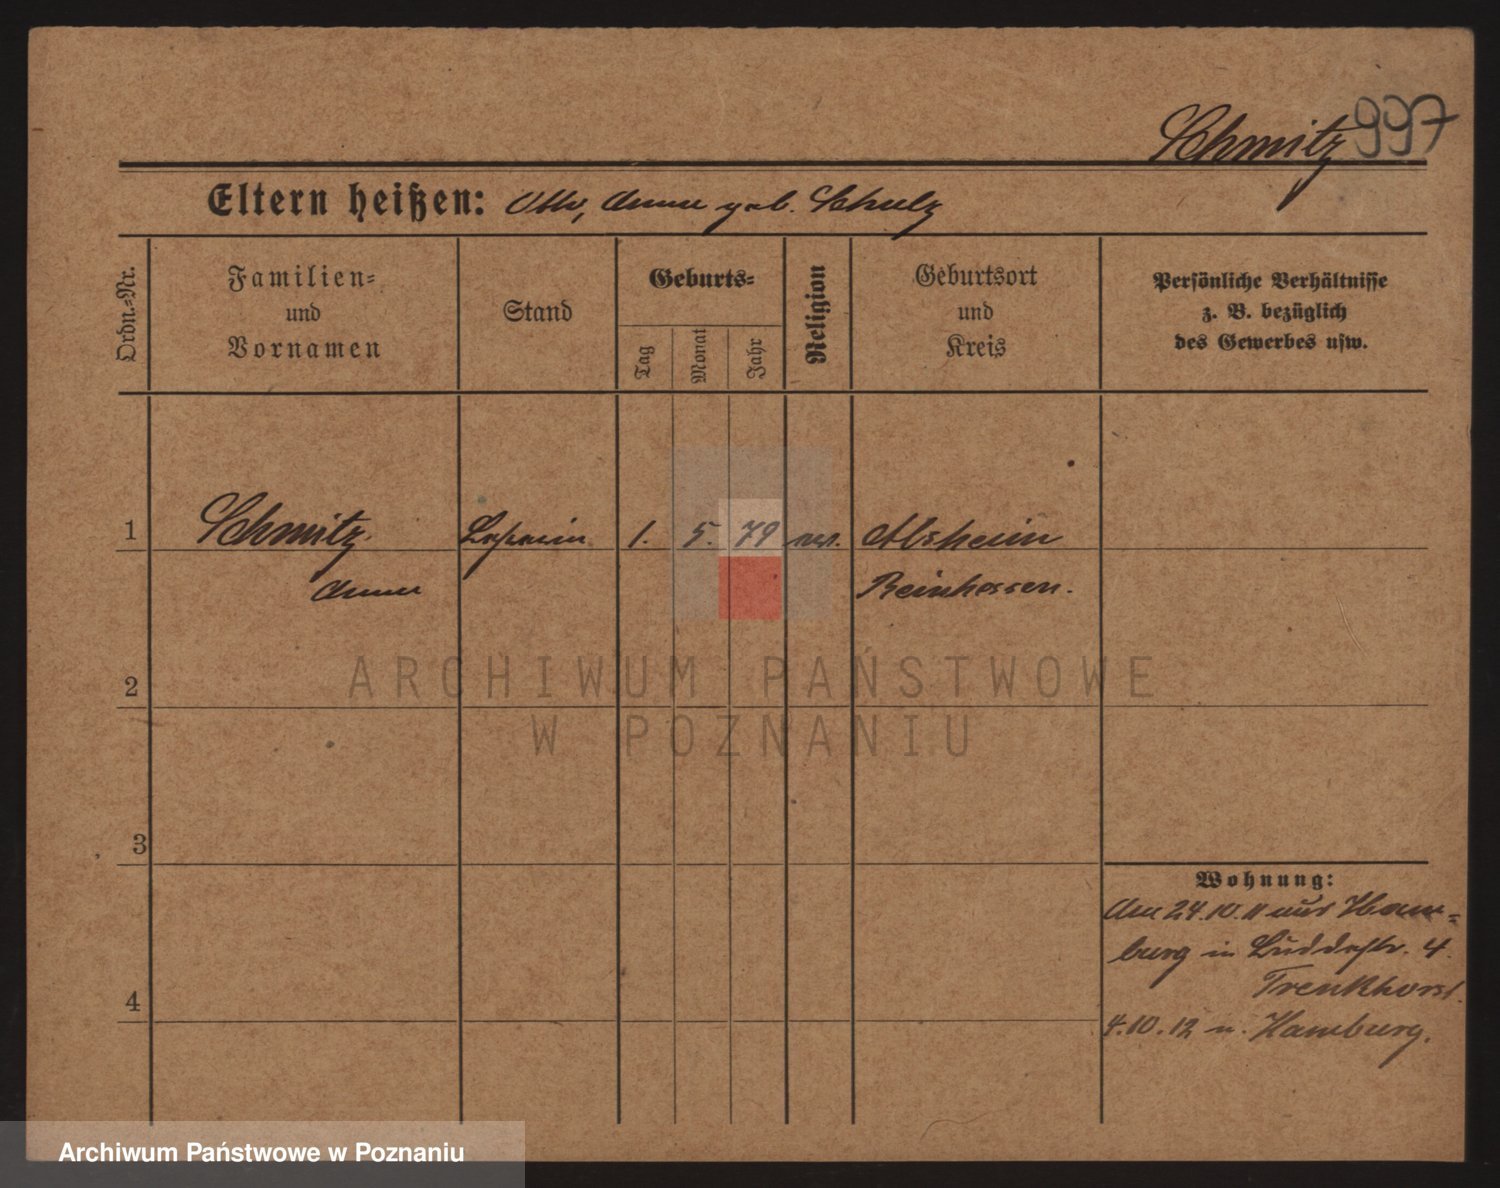 Schmitz 997
Eltern heißen: Otto, Anna geb. Schulz
Ordn.-Nr.
Familien-
und
Vornamen
Stand
Geburts-
Tag
Monat
Jahr
Religion
Geburtsort
und
Kreis
Persönliche Verhältnisse
z. B. bezüglich
des Gewerbes usw.
1 Schmitz 1. 5. 79 Alsheim
Anna
2
3
4
Wohnung:
Am 24.10.11 aus Ham-
burg in 4.
Trenkhorst.
4.10.12 n. Hamburg.
ARCHIWUM PAŃSTWOWE
W POZNANIU
Archiwum Państwowe w Poznaniu